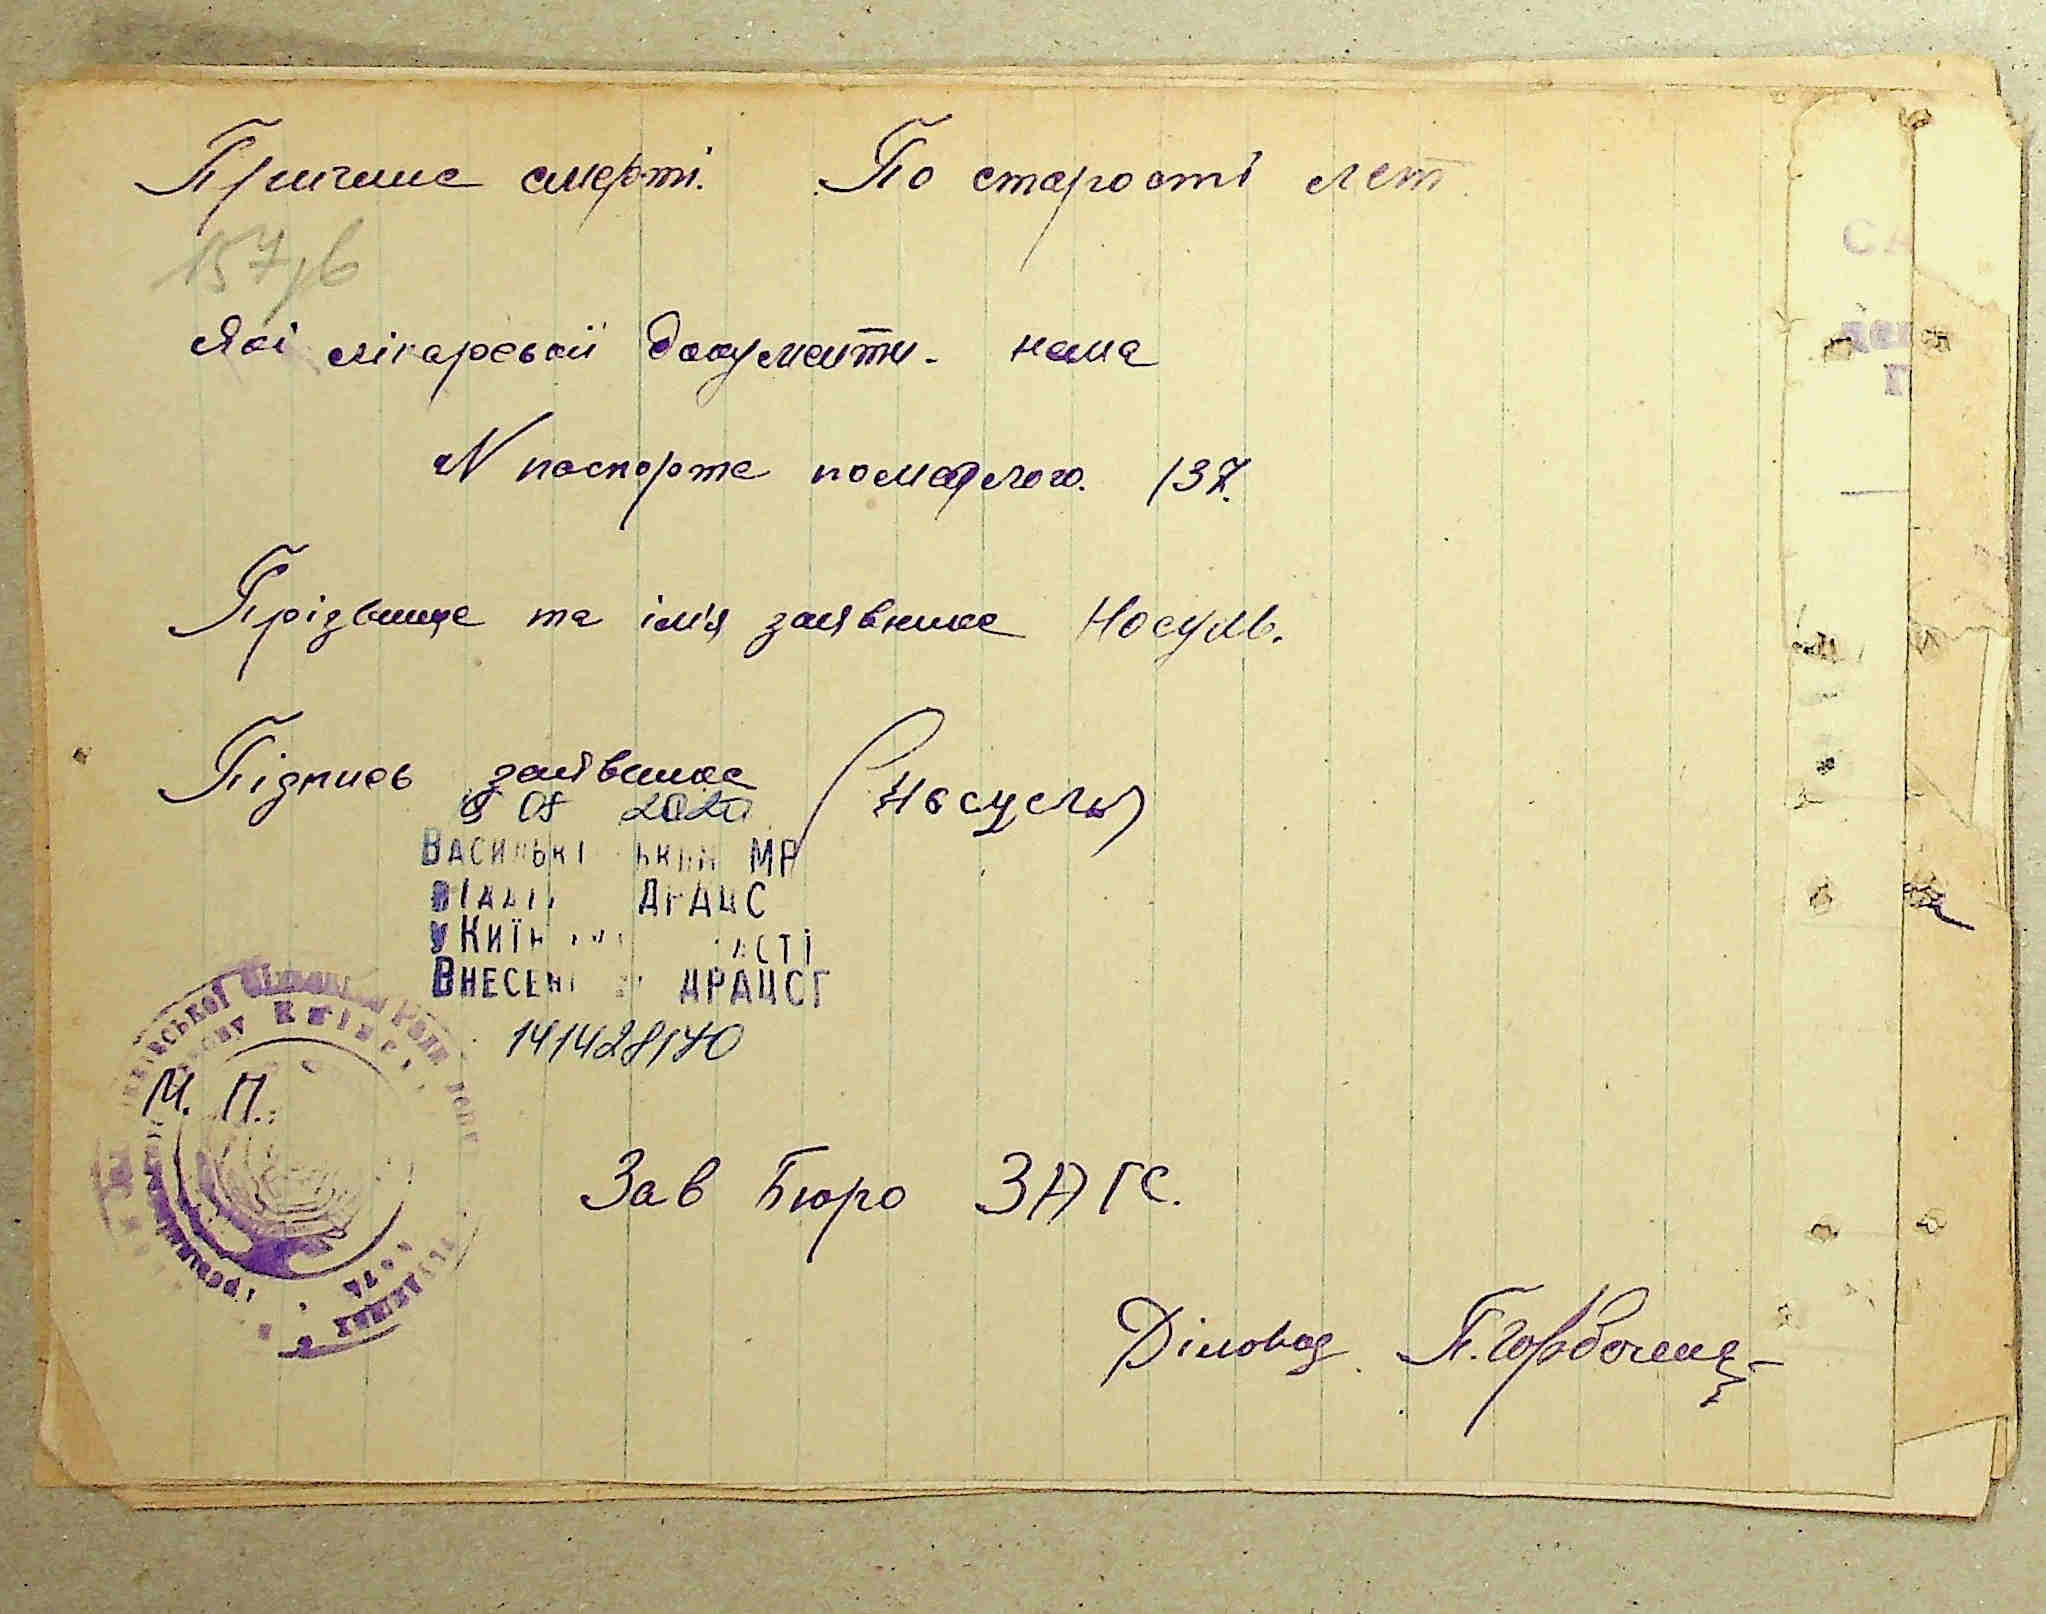 Причина смерті. По старості лет
157зв
Які лікарські документи - нема
N паспорта помершого. 137.
Прізвище та ім'я заявника Носуль.
Підпись заявника (Носуль)
08 2020
МР
ДРАЦС
У
ВНЕСЕН ДРАЦСГ
141428140
М. П.
Зав Бюро ЗАГС.
Діловод П. Горбо